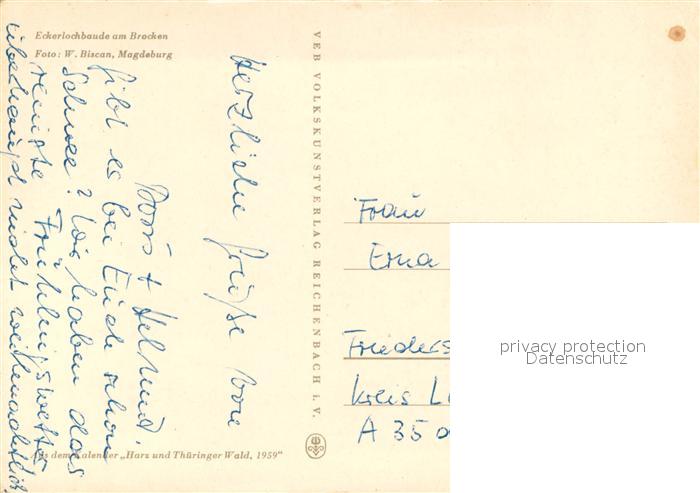 Eckerlochbaude am Brocken
Foto: W. Biscan, Magdeburg
Herzliche Grüße von
Doris + Helmut.
Gibt es bei Euch schon
Schnee? Wir haben das
reinste Frühlingswetter
überhaupt nicht weihnachtlich.
VEB VOLKSKUNSTVERLAG REICHENBACH i. V.
Frau
Erna
Frieders
Kreis
A 35
privacy protection
Datenschutz
Aus dem Kalender „Harz und Thüringer Wald, 1959"